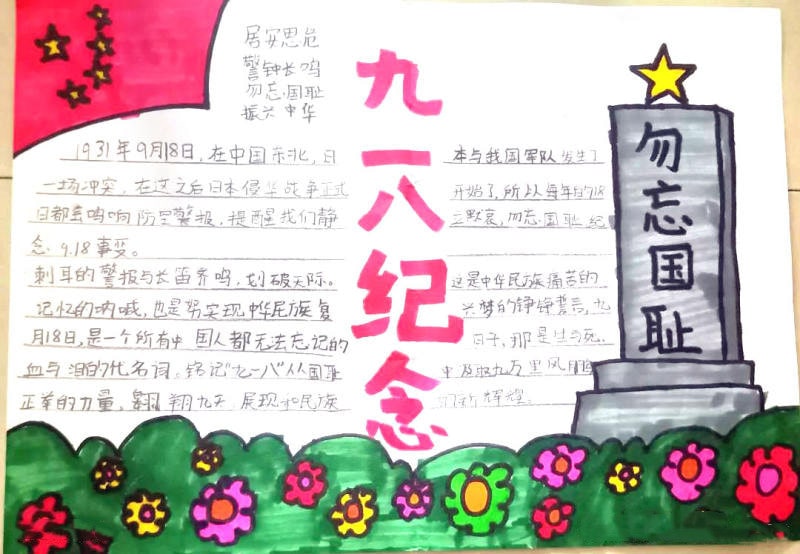 居安思危
警钟长鸣
勿忘国耻
振兴中华
九一八纪念
勿忘国耻
1931年9月18日,在中国东北,日本与我国军队发生了
一场冲突,在这之后日本侵华战争正式开始了,所以每年的918
日都会鸣响防空警报,提醒我们静立默哀,勿忘国耻纪
念9.18事变。
刺耳的警报与长笛齐鸣,划破天际。这是中华民族痛苦的
记忆的呐喊,也是努实现中华民族复兴梦的铮铮誓言,九
月18日,是一个所有中国人都无法忘记的日子,那是生与死,
血与泪的代名词。铭记"九一八"从国耻中汲取九万里风
正举的力量,翱翔九天,展现和民族的新辉煌.